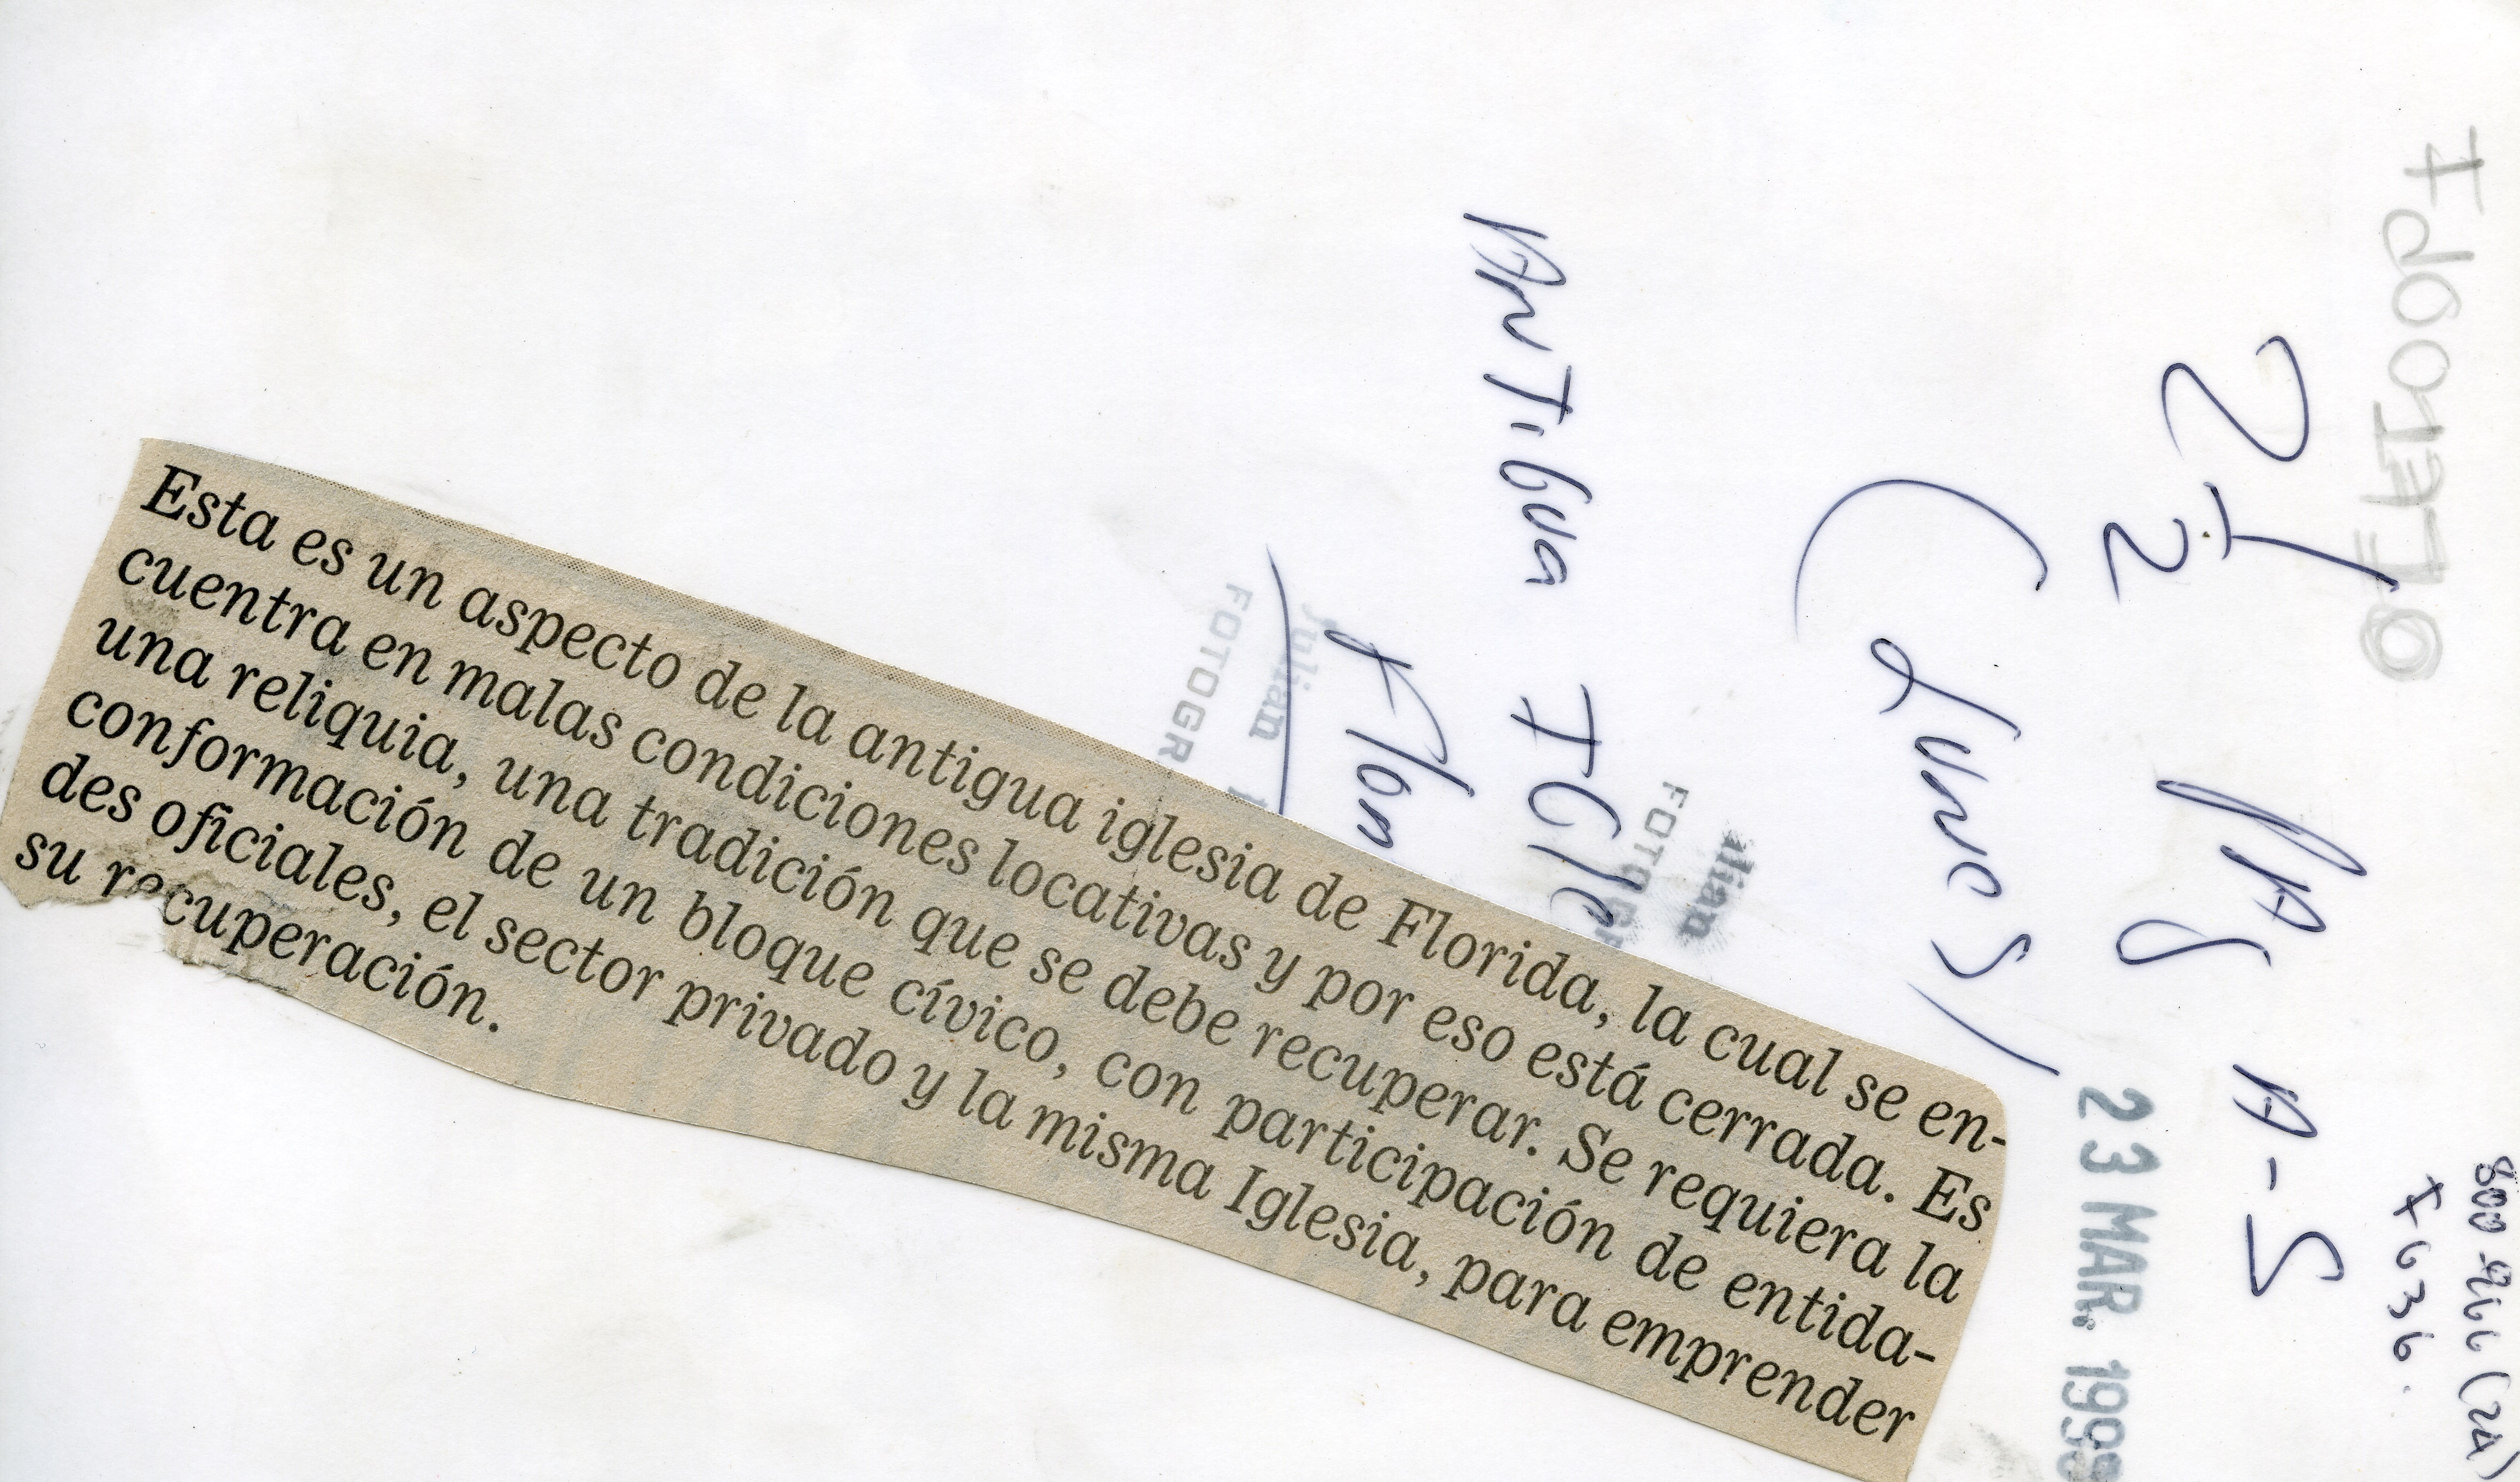 Esta es un aspecto de la antigua iglesia de Florida, la cual se en-
cuentra en malas condiciones locativas y por eso está cerrada. Es
una reliquia, una tradición que se debe recuperar. Se requiera la
conformación de un bloque cívico, con participación de entida-
des oficiales, el sector privado y la misma Iglesia, para emprender
su recuperación.
800-966 (2A)
x 636.
2 1/2 PAG A-5
(Lunes)
23 MAR. 199
Antigua Igle
Flon
Julian
FOTOGR
ulian